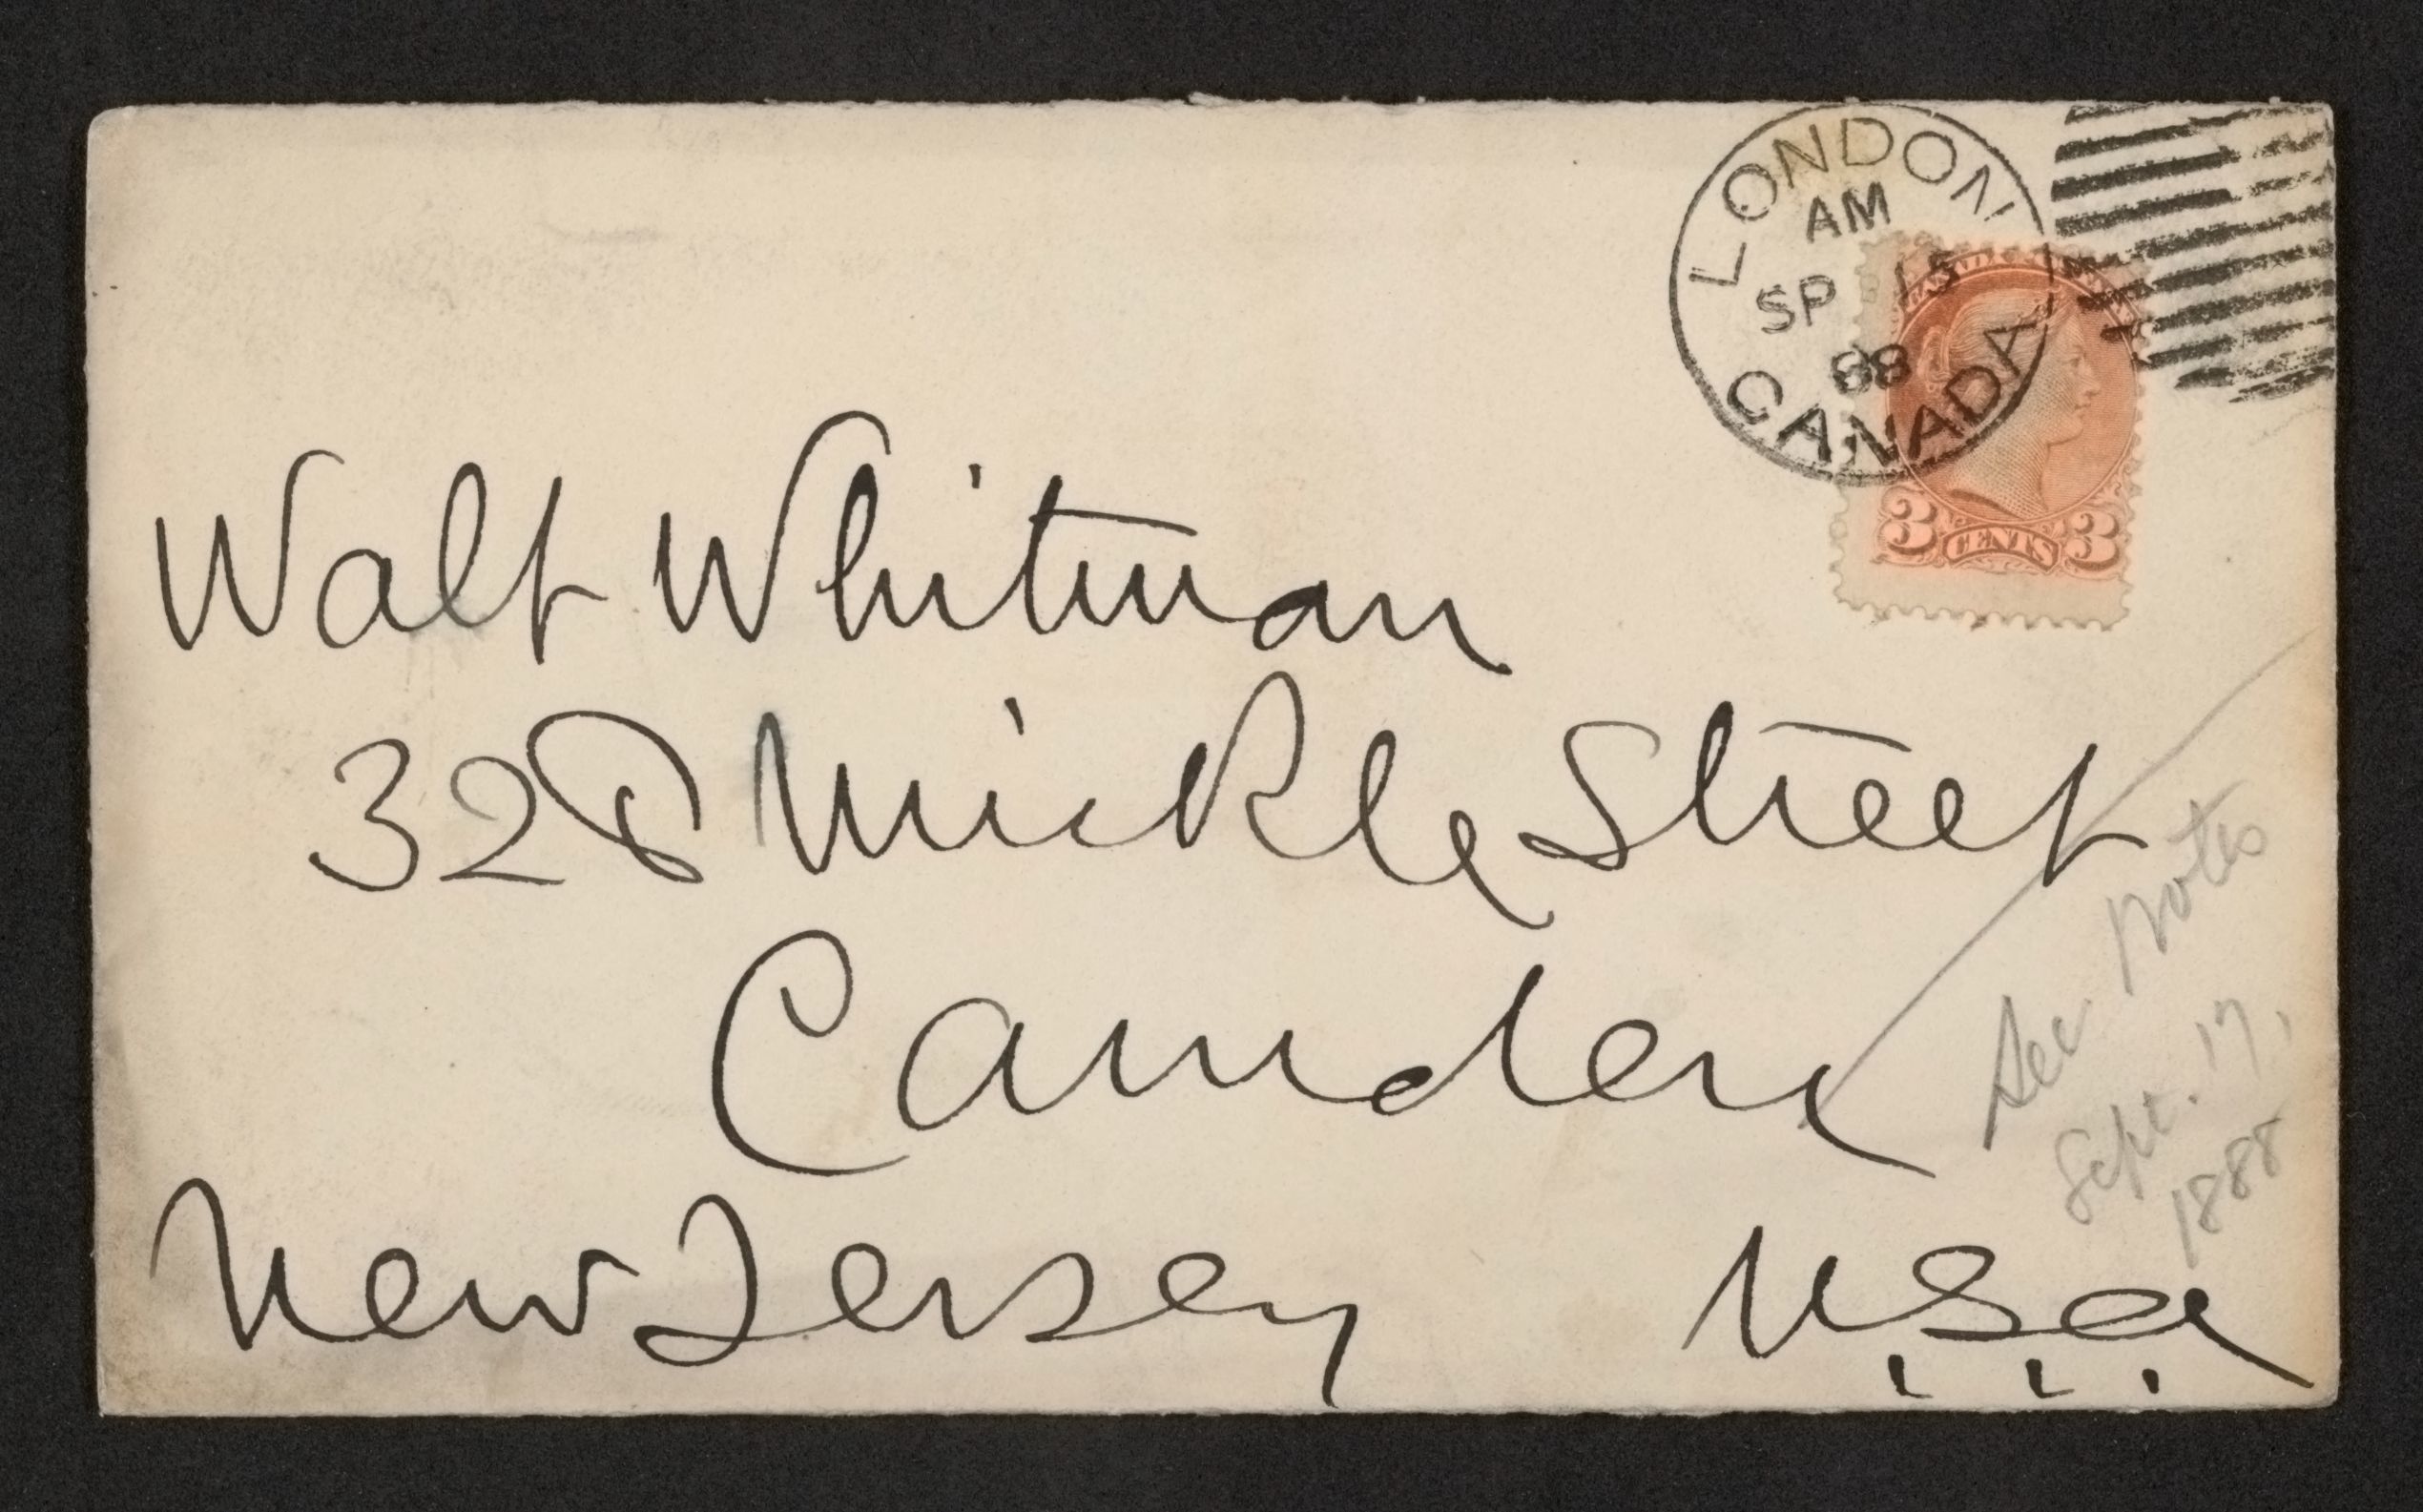 LONDON
AM
SP 15
88
CANADA
3 CENTS 3
Walt Whitman
328 Mickle Street
Camden
New Jersey U.S.A.
See notes
Sept. 17,
1888